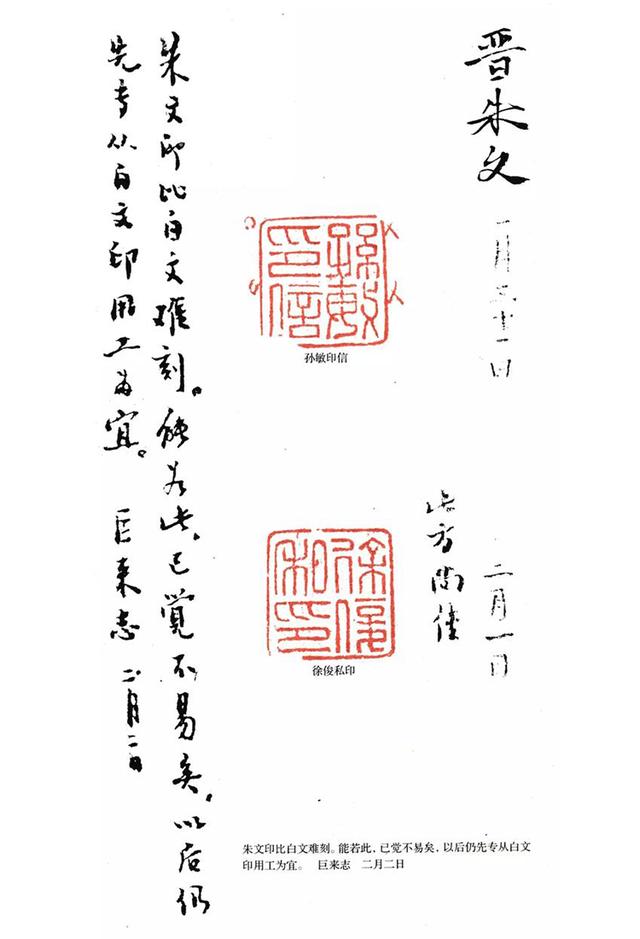 晋朱文
一月三十一日
孫敏
印信
孙敏印信
二月一日
此方尚佳
徐俊
私印
徐俊私印
朱文印比白文难刻。能若此、已覺不易矣，以后仍
先专从白文印用工为宜。 巨来志 二月二日
朱文印比白文难刻。能若此，已觉不易矣，以后仍先专从白文
印用工为宜。 巨来志 二月二日